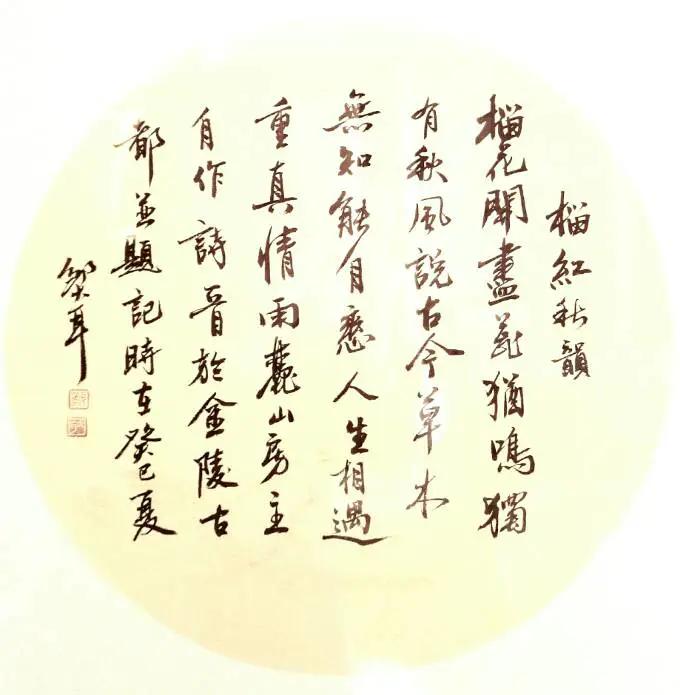 榴紅秋韻
榴花開盡猶鳴獨
有秋風說古今草木
無知能自人生相遇
重真情雨麓山房主
自作詩書於金陵古
都並題記時在癸巳夏